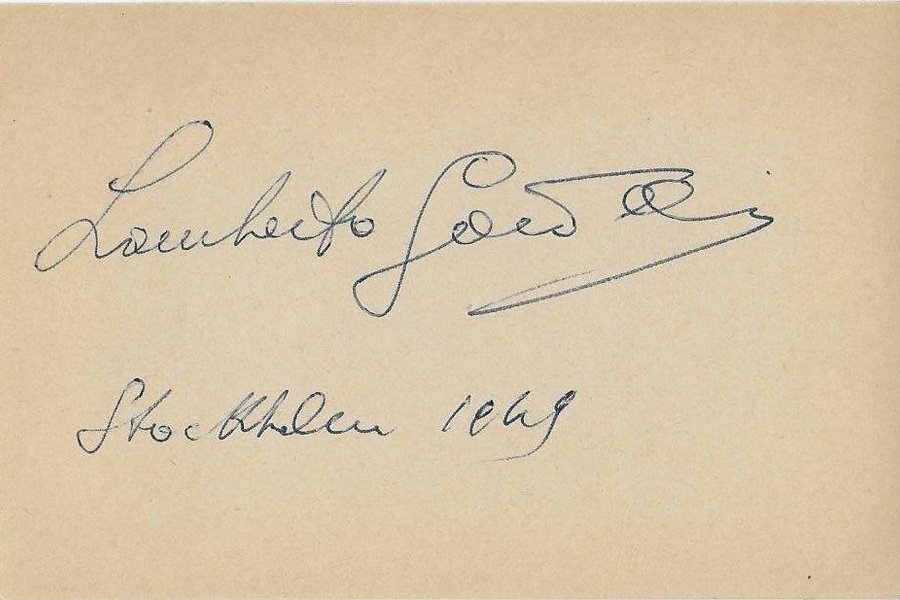 Lamberto Gardelli
Stockholm 1949